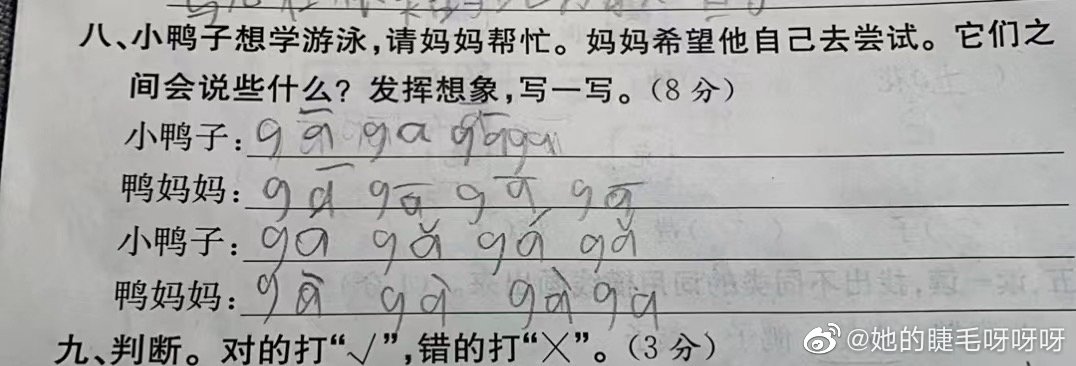 八、小鸭子想学游泳,请妈妈帮忙。妈妈希望他自己去尝试。它们之
间会说些什么?发挥想象,写一写。(8分)
小鸭子:gā ga gāga
鸭妈妈:gā gā gā gā
小鸭子:ga gǎ gá gǎ
鸭妈妈:gā gà gà ga
九、判断。对的打“√”,错的打“×”。(3分)
@她的睫毛呀呀呀